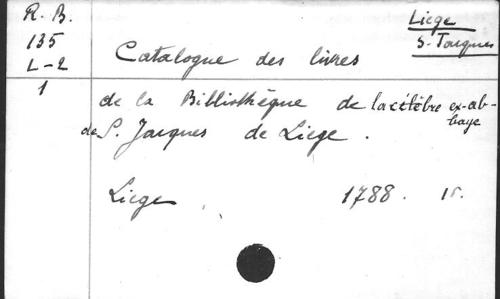 R. B.
135
L-2
1
Liege
S-Jacques
Catalogue des livres
de la Bibliothèque de la célèbre ex-ab-
baye
de S. Jacques de Liege.
Liege, 1788.